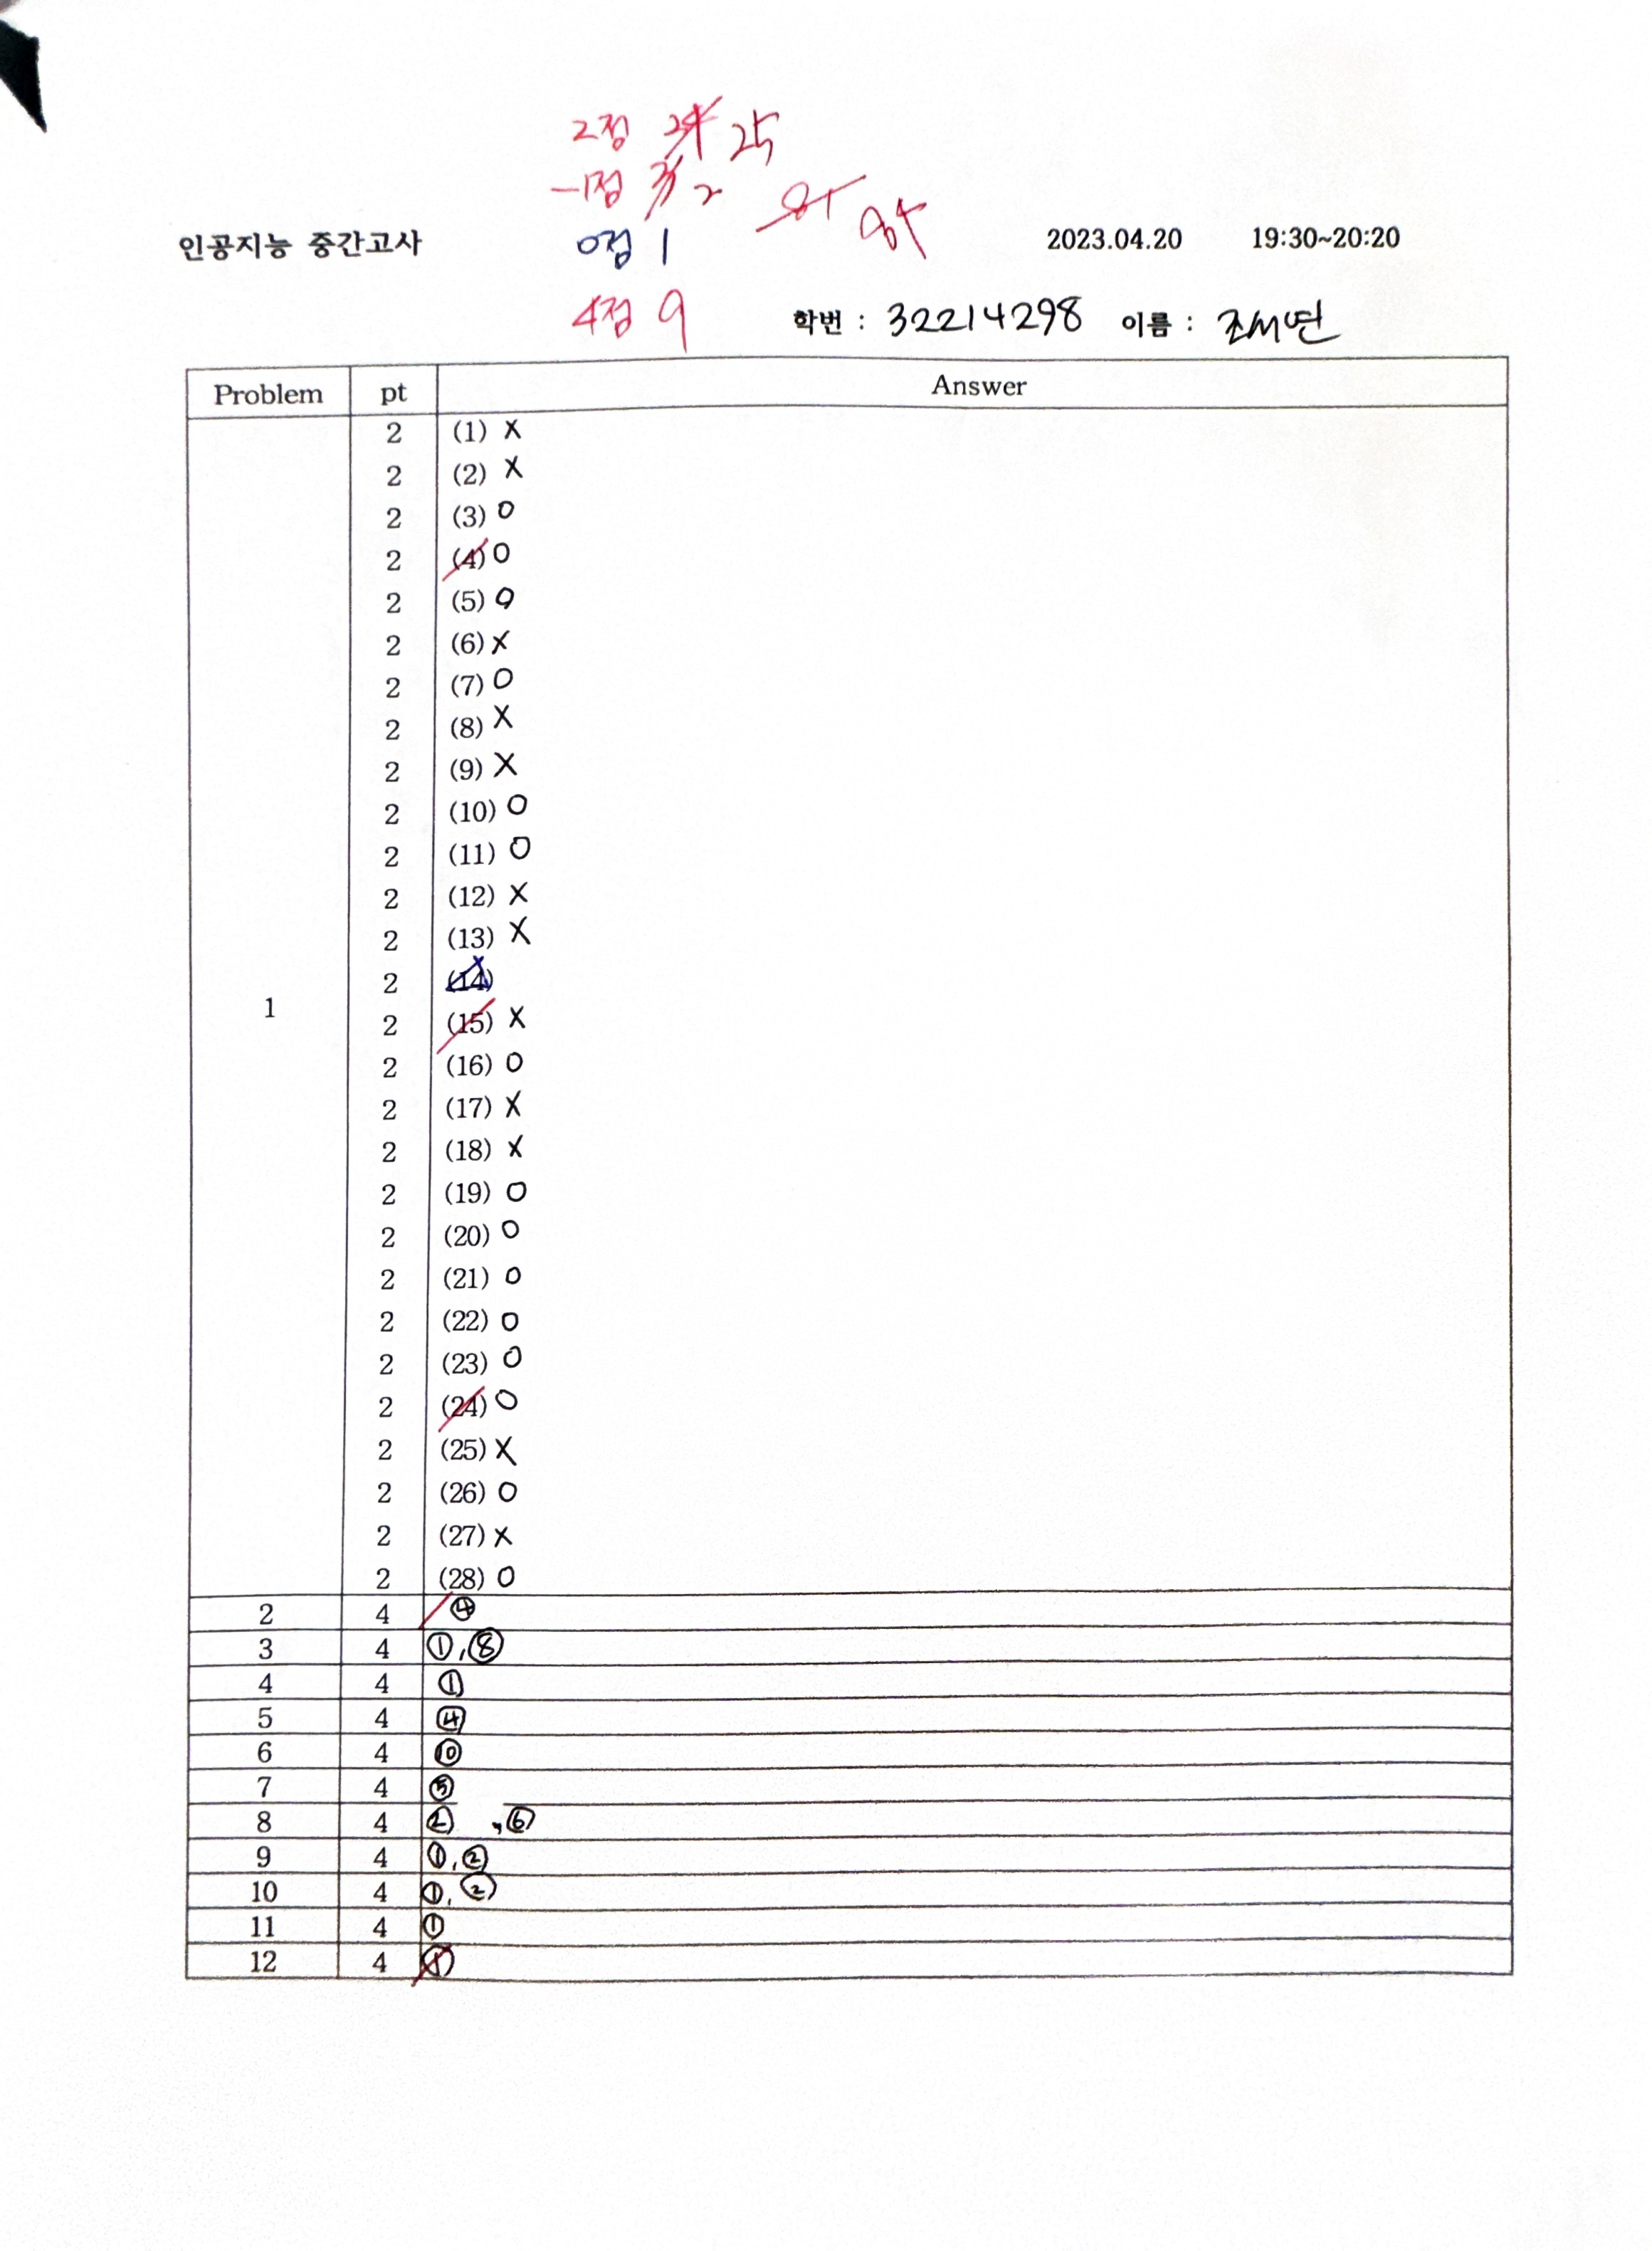 2점 24 25
-1점 3 2
81 84
인공지능 중간고사 0점 1 2023.04.20 19:30~20:20
4점 9 학번 : 32214298 이름 : 조서연
Problem pt Answer
2 (1) X
2 (2) X
2 (3) O
2 (4) O
2 (5) O
2 (6) X
2 (7) O
2 (8) X
2 (9) X
2 (10) O
2 (11) O
2 (12) X
2 (13) X
2 (14)
1 2 (15) X
2 (16) O
2 (17) X
2 (18) X
2 (19) O
2 (20) O
2 (21) O
2 (22) O
2 (23) O
2 (24) O
2 (25) X
2 (26) O
2 (27) X
2 (28) O
2 4 ④
3 4 ①, ⑧
4 4 ①
5 4 ④
6 4 ⑩
7 4 ⑤
8 4 ② , ⑥
9 4 ①, ②
10 4 ①, ②
11 4 ①
12 4 ①